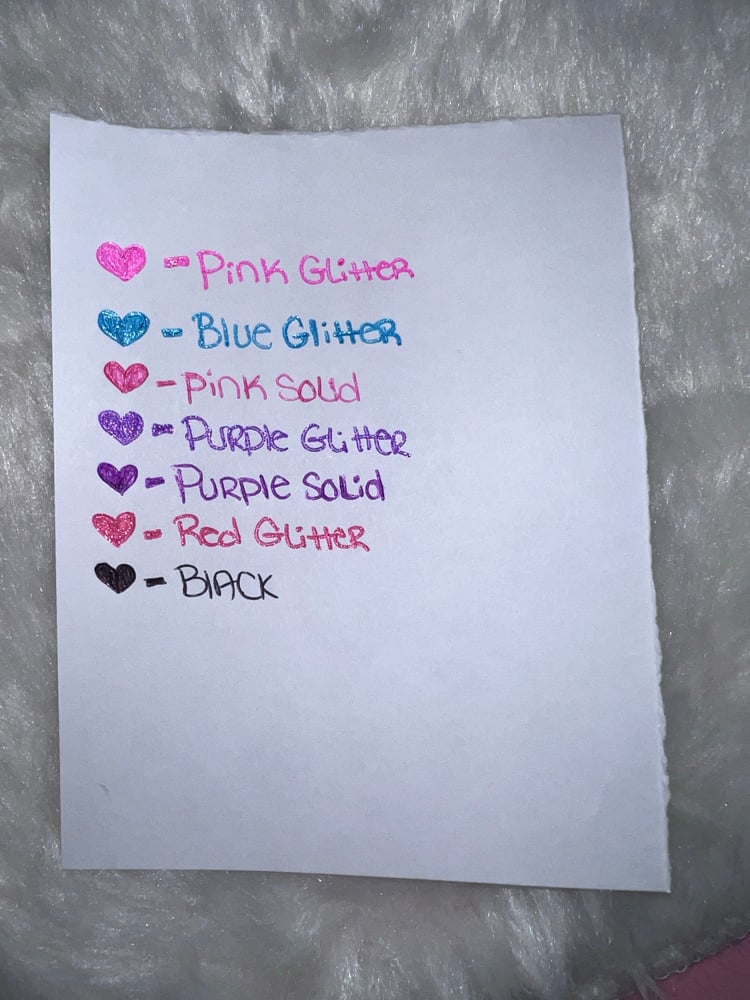 - Pink Glitter
- Blue Glitter
- Pink Solid
- PURPle Glitter
- PURPle Solid
- Red Glitter
- BlACK